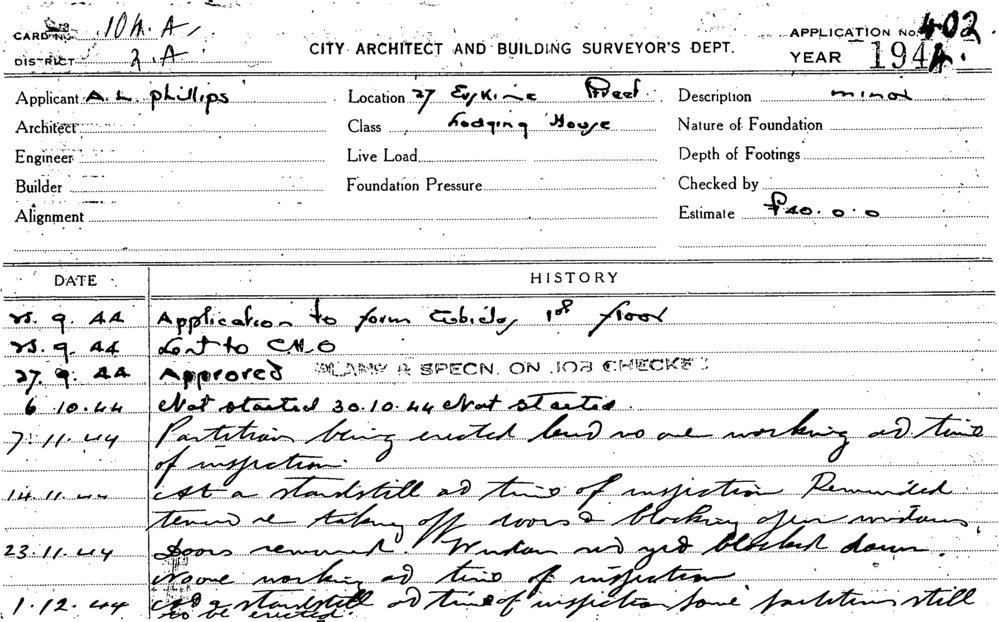 CARD No. 104. A.
APPLICATION No. 402.
DISTRICT 2. A
CITY ARCHITECT AND BUILDING SURVEYOR'S DEPT.
YEAR 1944.
Applicant A. L. Phillips Location 27 Erskine Street Description minor
Architect Class Lodging House Nature of Foundation
Engineer Live Load Depth of Footings
Builder Foundation Pressure Checked by
Alignment Estimate £40.0.0
DATE HISTORY
25.9.44 Application to form Cubicles 1st floor
25.9.44 Sent to CHO
27.9.44 Approved PLANS & SPECN. ON JOB CHECKED
6.10.44 Not started 30.10.44 Not started.
7.11.44 Partitions being erected no one working at time
of inspection.
14.11.44 At a standstill at time of inspection Reminded
re taking off doors & blocking open windows.
23.11.44 Doors removed. Window not yet blocked down.
No one working at time of inspection.
1.12.44 At a standstill at time of inspection some partitions still
to be erected.